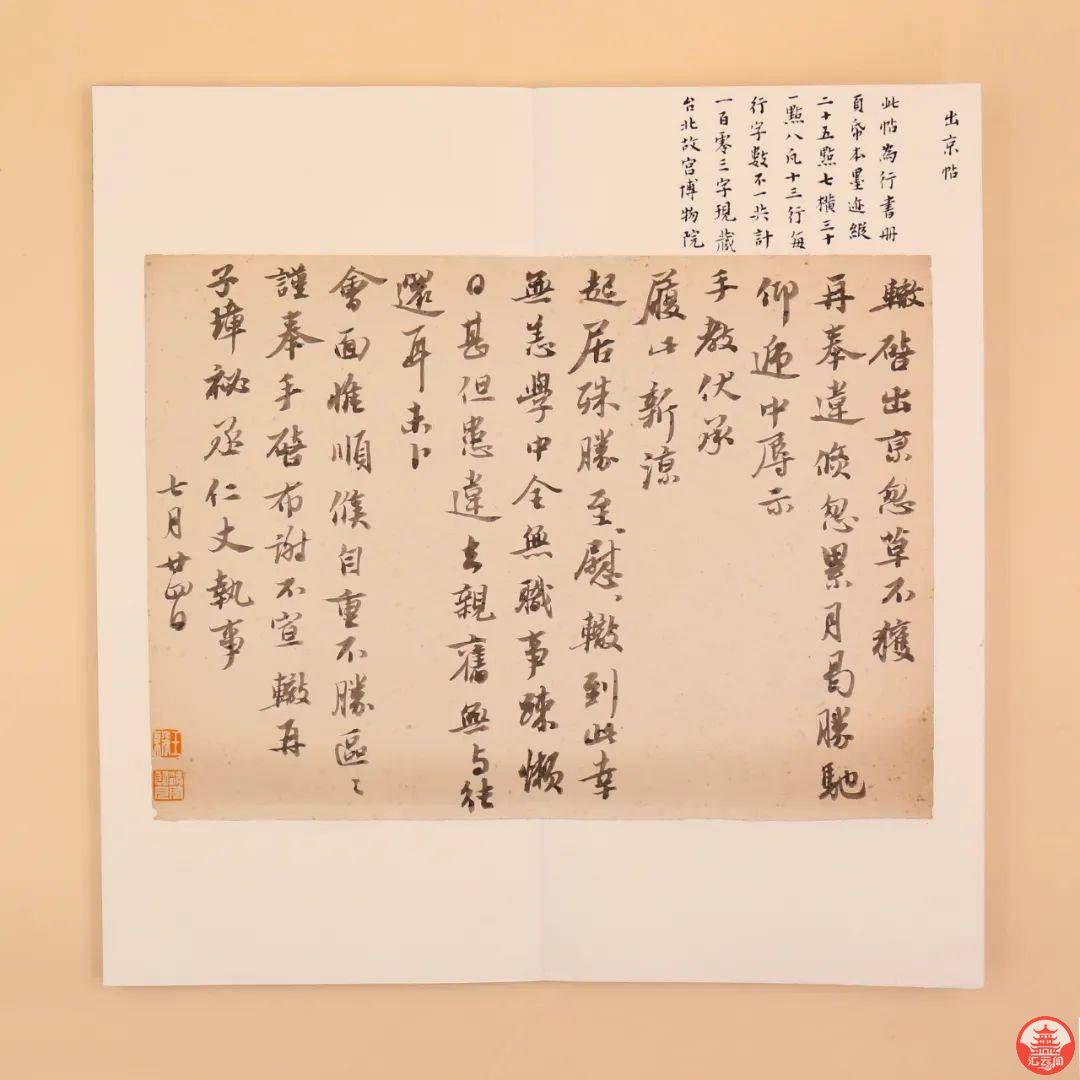 出京帖
此帖為行書冊
頁帋本墨迹縱
二十五點七橫三十
一點八凡十三行每
行字數不一共計
一百零三字現藏
台北故宮博物院
轍啓出京忽草不獲
再奉違倐忽累月曷勝馳
仰遞中辱示
手教伏承
履此新涼
起居殊勝至、慰、轍到此幸
無恙學中全無職事踈懶
日甚但患違去親舊無与徃
還耳未卜
會面惟順候自重不勝區〻
謹奉手啓布謝不宣 轍再
子璋祕丞仁丈執事
七月廿四日
汇云阁